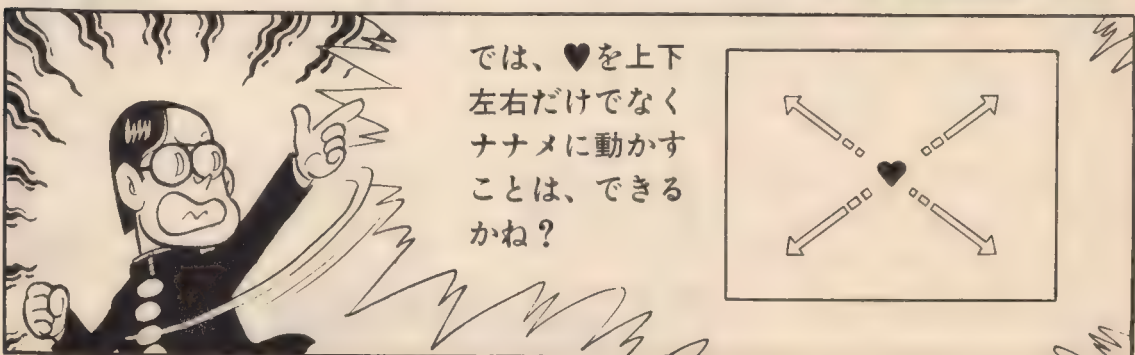 では、♥を上下
左右だけでなく
ナナメに動かす
ことは、できる
かね？